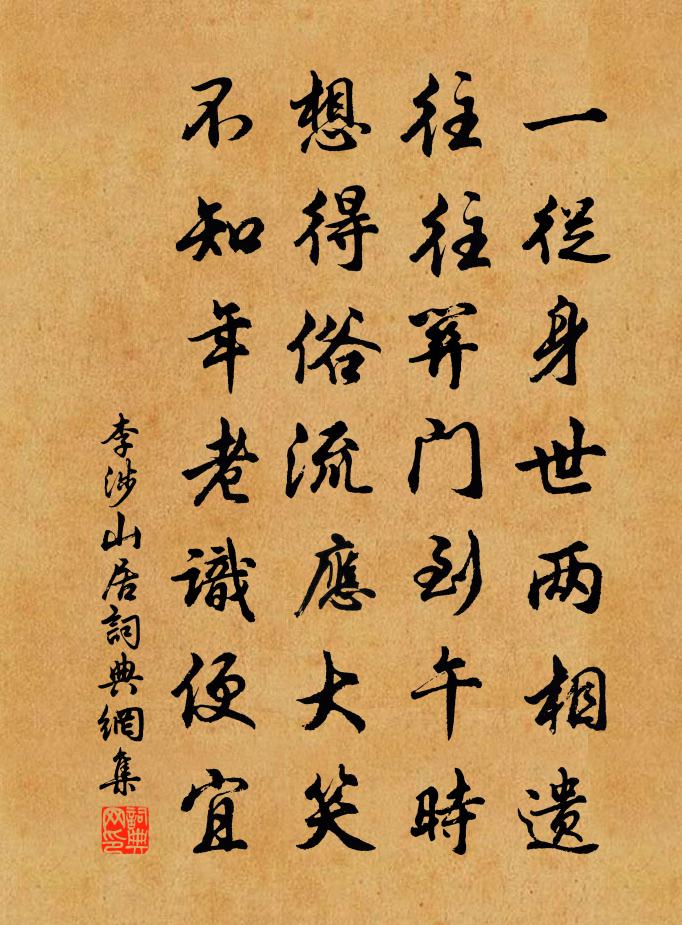 一從身世两相遺
往往關门到午時
想得俗流應大笑
不知年老識便宜
李涉山居詞典網集
詞典网印